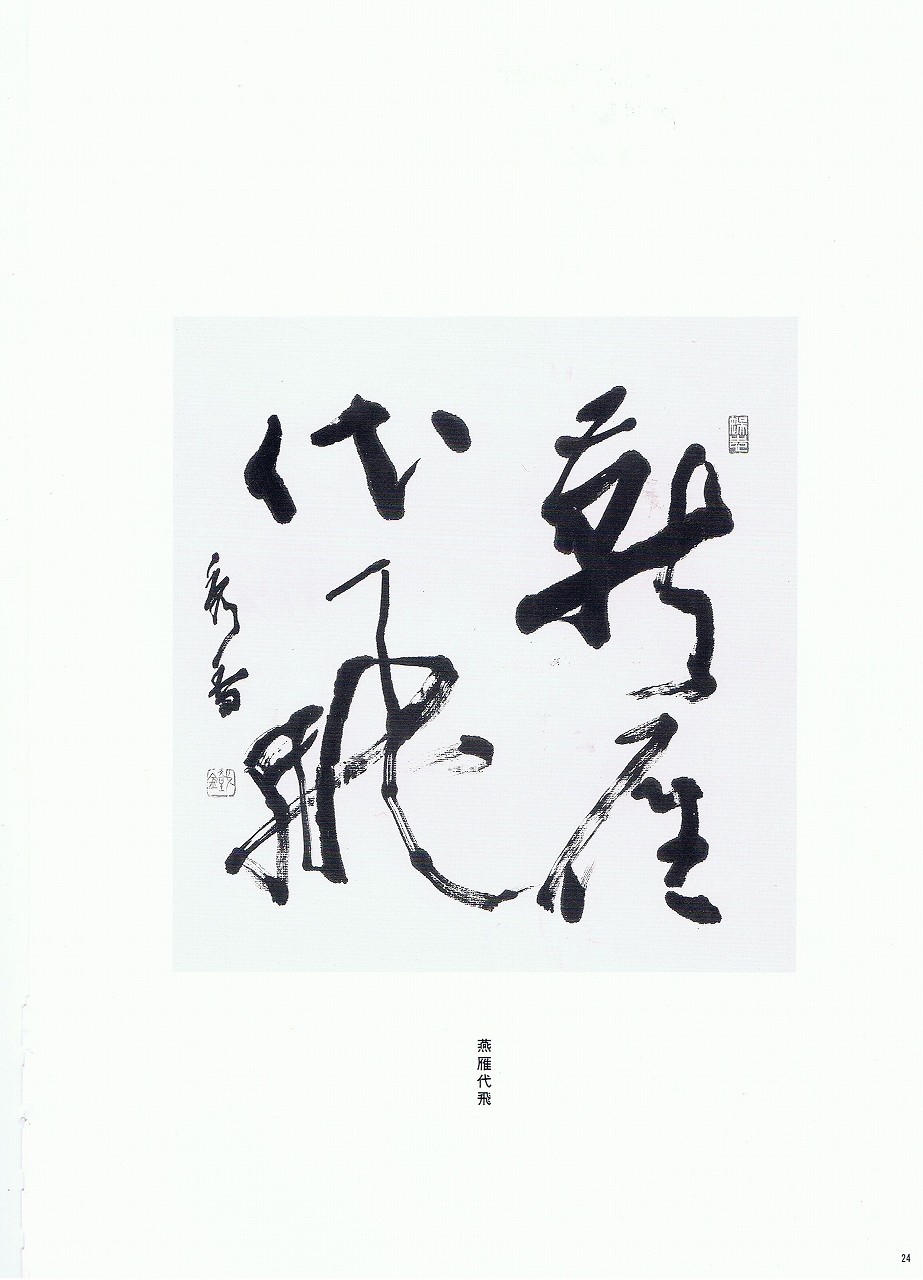 燕雁
代飛
秀香
燕雁代飛
24